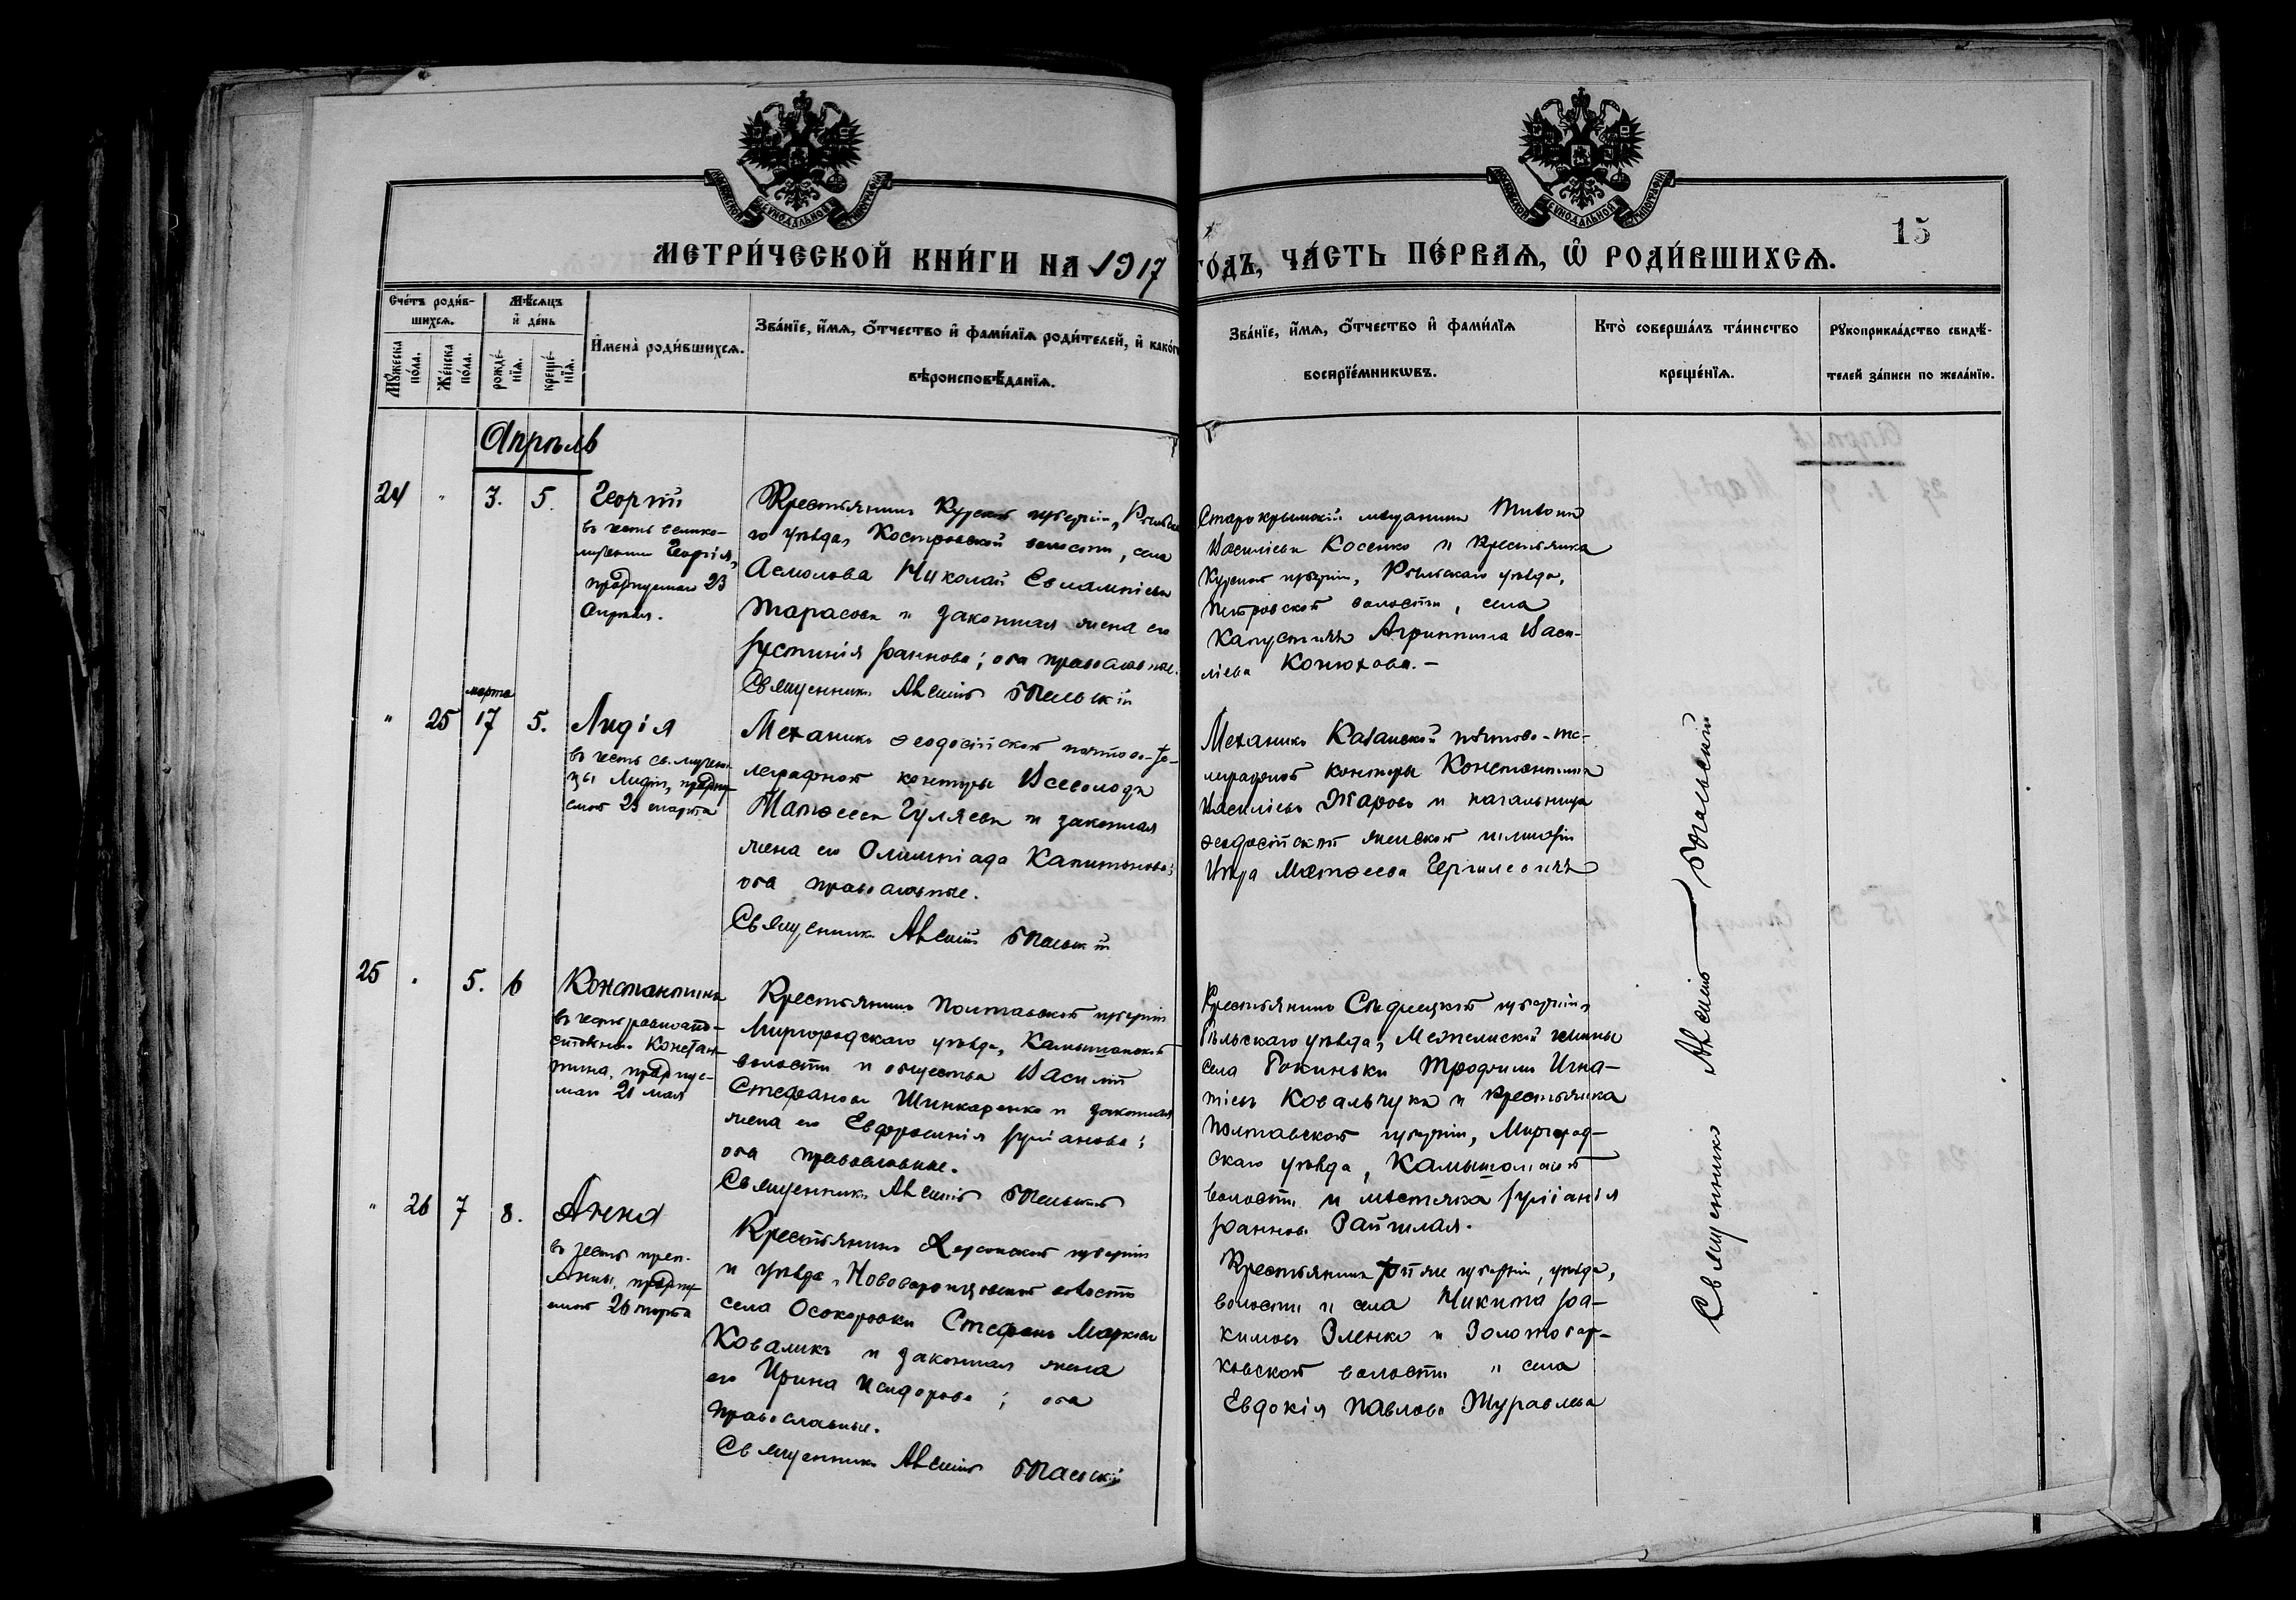 МЕТРИ́ЧЕСКОЙ КНИ́ГИ НА 1917
ГО́ДЪ, ЧА́СТЬ ПЕ́РВАѦ, Ѡ҆ РОДИ́ВШИХСѦ.
15
Сче́тъ роди́в-
шихсѧ.
Мѣ́сѧцъ
и҆ де́нь
Мꙋ́жеска
по́ла.
Же́нска
по́ла.
рожде́-
нїѧ.
креще́-
нїѧ.
И҆мена̀ роди́вшихсѧ.
Зва́нїе, и҆́мѧ, ѻ҆́тчество и҆ фами́лїѧ роди́телей, и҆ како́гѡ
вѣроисповѣ́данїѧ.
Зва́нїе, и҆́мѧ, ѻ҆́тчество и҆ фами́лїѧ
воспрїе́мникѡвъ.
Кто̀ соверша́лъ та́инство
креще́нїѧ.
Рꙋкоприкла́дство свидѣ́-
телей за́писи по жела́нїю.
Апрѣль
24 " 3. 5. Георгій
въ честь велико-
мученика Георгія,
празднуемаго 23
Апрѣля.
Крестьянинъ Курской губерніи,
го уѣзда, Костровской волости, села
Асмолова Николай Евлампіевъ
Тарасовъ и законная жена его
Іустинія Іоаннова; оба православные.
Священникъ Алексій
Старокрымскій мѣщанинъ Тихонъ
Василіевъ Косенко и крестьянка
Курской губерніи, Рыльскаго уѣзда,
Петровской волости, села
Капустина Агриппина Васи-
ліева Конюхова.-
" 25 марта 17 5. Лидія
въ честь св. мучени-
цы Лидіи, праздну-
емой 23 марта
Механикъ Ѳеодосійской почтово-те-
леграфной конторы Всеволодъ
Матѳеевъ Гуляевъ и законная
жена его Олимпіада Капитонова;
оба православные.
Священникъ Алексій
Механикъ Казанской почтово-те-
леграфной конторы Константинъ
Василіевъ Жаровъ и начальница
Ѳеодосійской женской гимназіи
Матѳеева
25 " 5. 6 Константинъ
въ честь равноапо-
стольнаго Констан-
тина, празднуе-
маго 21 мая
Крестьянинъ Полтавской губерніи
Миргородскаго уѣзда, Камышанской
волости и общества Василій
Стефановъ Шинкаренко и законная
жена его Евфросинія Іуліанова;
оба православные.
Священникъ Алексій
Крестьянинъ Сѣдлецкой губерніи
Бѣльскаго уѣзда, гмины
села Трофимъ Игна-
тіевъ Ковальчукъ и крестьянка
Полтавской губерніи, Миргород-
скаго уѣзда, Камышанской
волости и мѣстечка Іуліанія
Іоаннова
" 26 7 8. Анна
въ честь преп.
Анны, праздну-
емой 26 марта
Крестьянинъ Херсонской губерніи
и уѣзда, Нововоронцовской волости
села Осокоровки Стефанъ Марковъ
Коваликъ и законная жена
его Ирина Исидорова; оба
православные.
Священникъ Алексій
Крестьянинъ той же губерніи, уѣзда,
волости и села Никита Іоа-
кимовъ Зленко и Золотобал-
ковской волости и села
Евдокія Павлова Журавлева
Священникъ Алексій